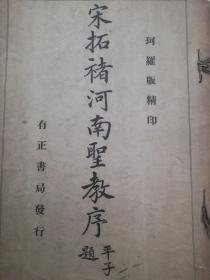 珂羅版精印
宋拓褚河南聖教序
平子題
有正書局發行